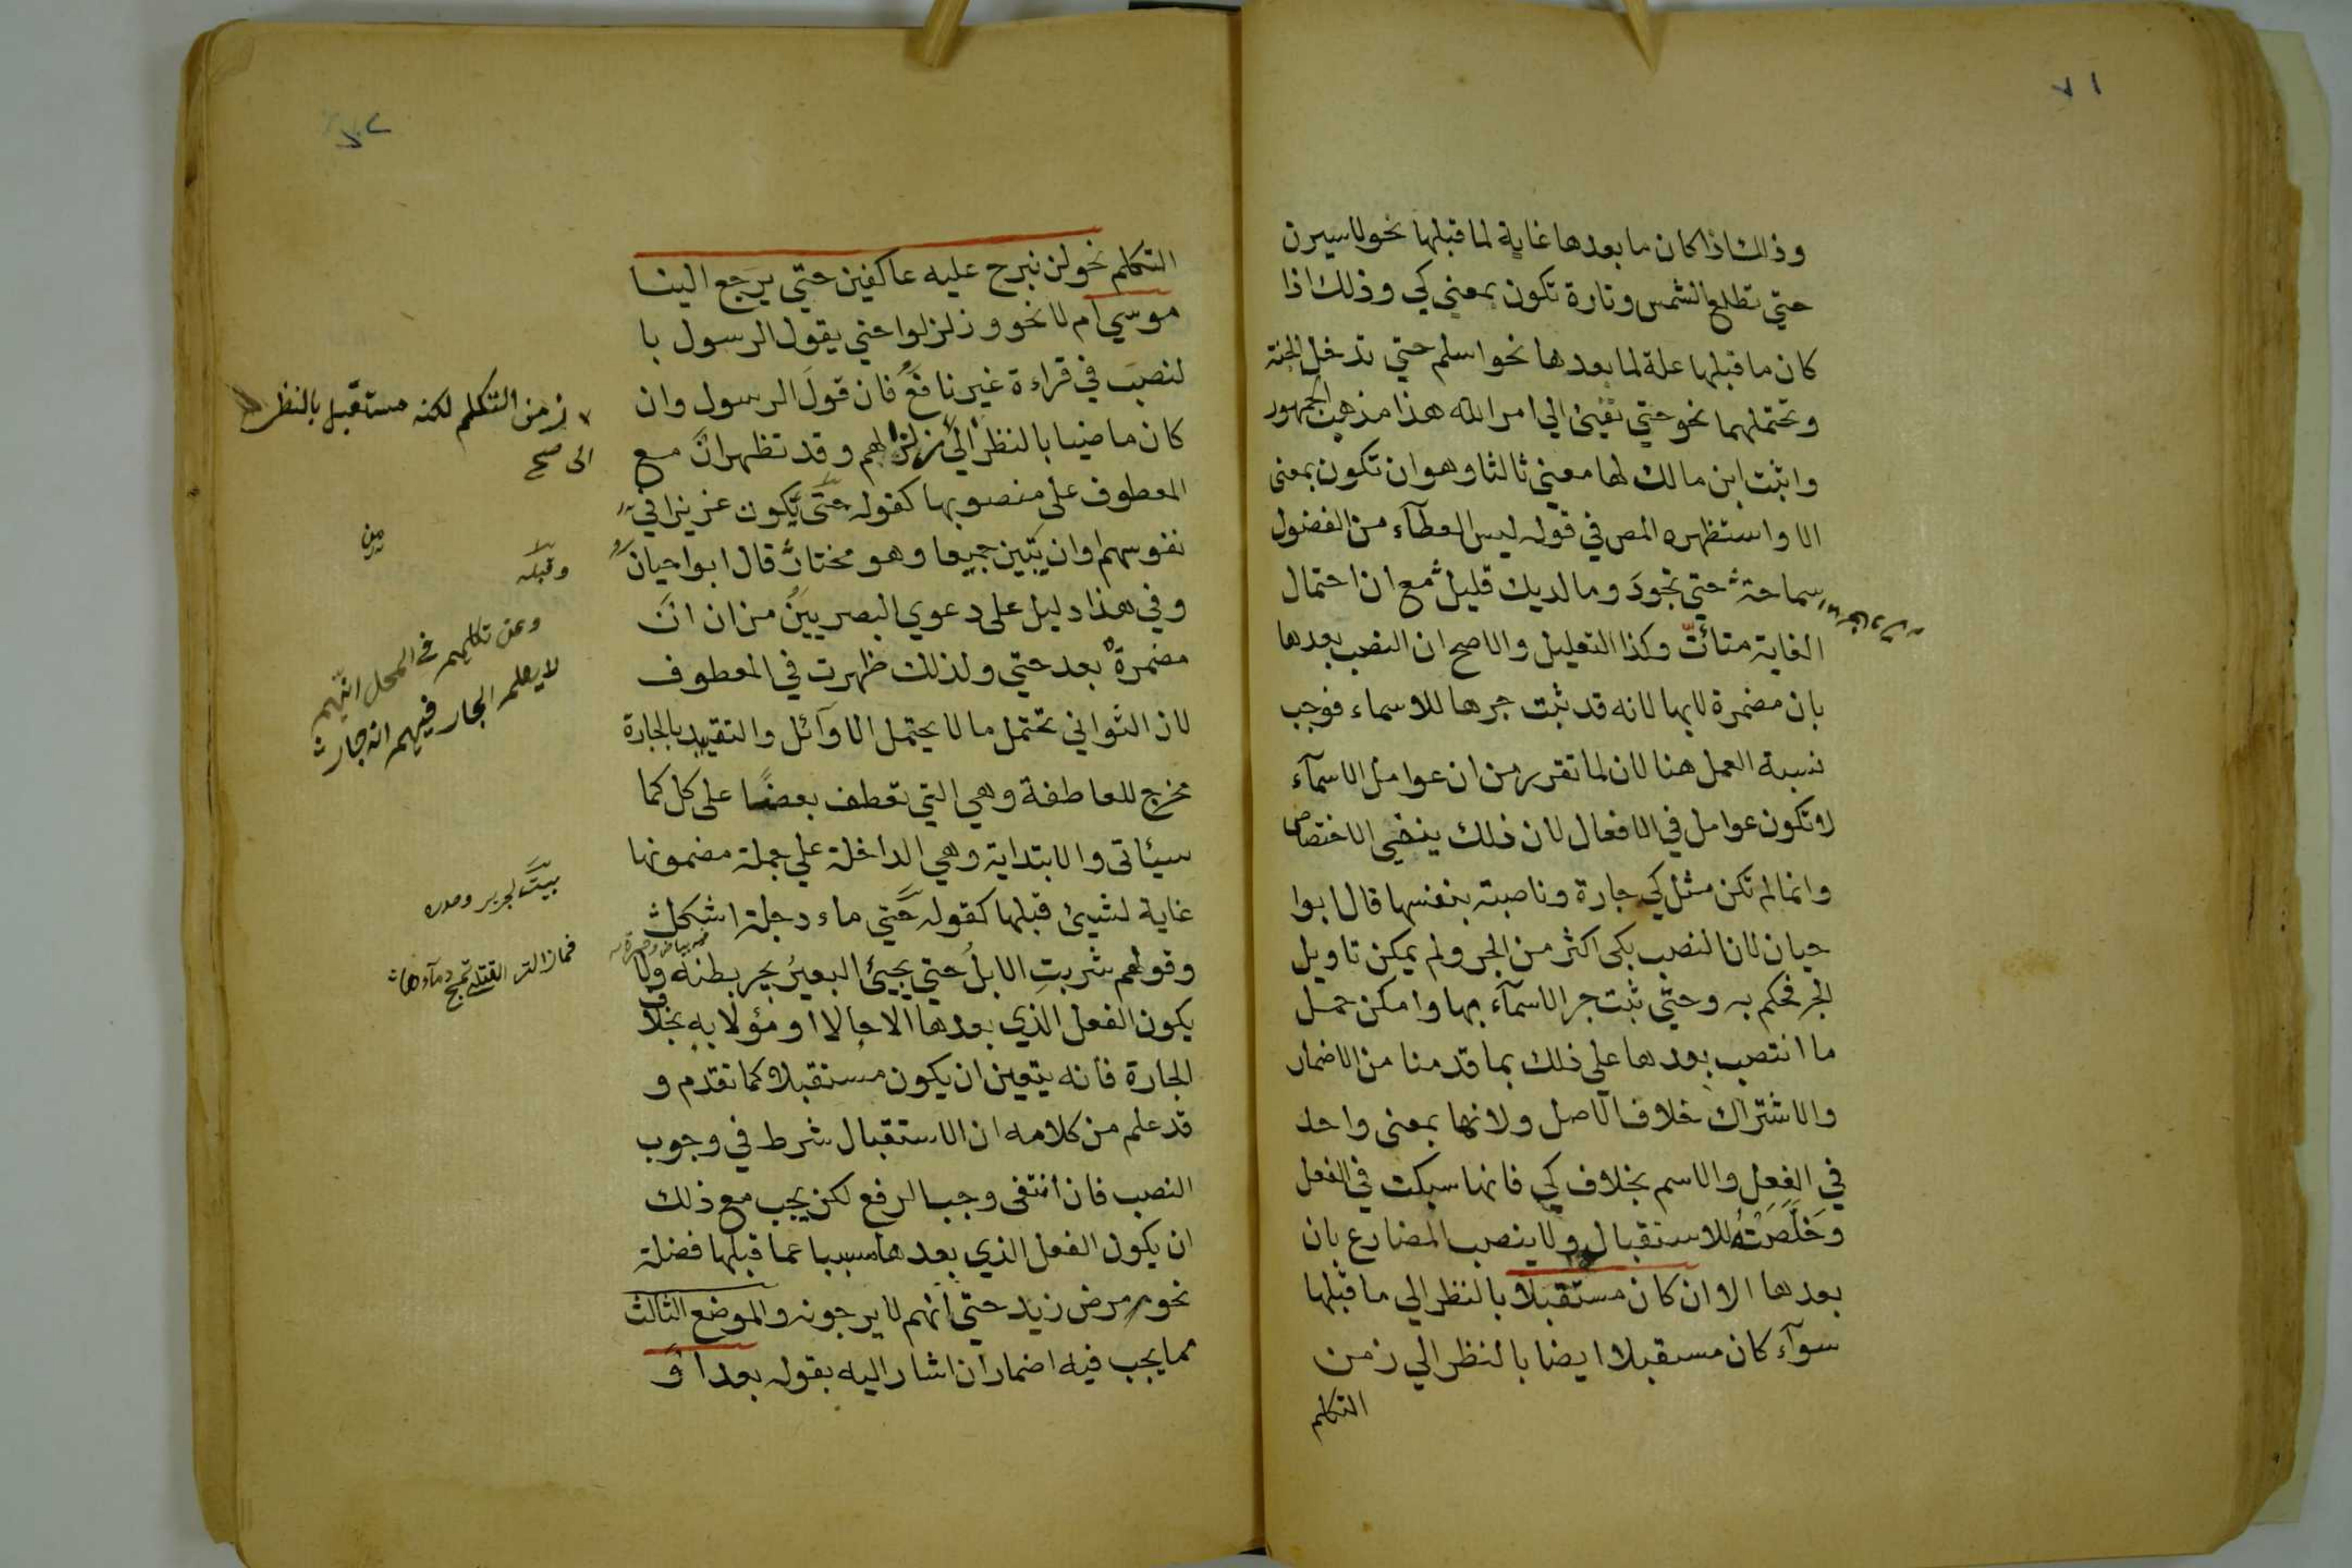 ٧١
وذلك اذا كان ما بعدها غاية لما قبلها نحو لاسيرن
حتي تطلع الشمس وتارة تكون بمعني كي وذلك اذا
كان ما قبلها علة لما بعدها نحو اسلم حتي تدخل الجنة
وتحتملهما نحو حتي تفيئ الي امر الله هذا مذهب الجمهور
واثبت ابن مالك لها معني ثالثا وهو ان تكون بمعنى
الا واستظهره المص في قوله ليس العطآء من الفضول
سماحة حتي تجودَ وما لديك قليل مع ان احتمال
الغاية متأتّ وكذا التعليل والاصح ان النصب بعدها
بان مضمرة لابها لانه قد ثبت جرها للاسماء فوجب
نسبة العمل هنا لان لما تقرر من ان عوامل الاسمآء
لا تكون عوامل في الافعال لان ذلك ينفي الاختصاص
وانما لم تكن مثل كي جارة وناصبة بنفسها قال ابوا
حيان لان النصب بكى اكثر من الجر ولم يمكن تاويل
الجر فحكم به وحتّي ثبت جر الاسمآء بها وامكن حمل
ما انتصب بعدها علي ذلك بما قدمنا من الاضمار
والاشتراك خلاف الاصل ولانها بمعنى واحد
في الفعل والاسم بخلاف كي فانها سبكت في الفعل
وخلّصته للاستقبال ولا ينصب المضارع بان
بعدها الا ان كان مستقبلا بالنظر الي ما قبلها
سوآء كان مستقبلا ايضا بالنظر الي زمن
التكلم
التكلم نحو لن نبرح عليه عاكفين حتي يرجع الينا
موسي ام لا نحو وزلزلوا حتي يقول الرسول با
لنصب في قراءة غير نافع فان قول الرسول وان
كان ماضيا بالنظر الي زلزالهم وقد تظهر ان مع
المعطوف على منصوبها كقوله حتّى يكون عزيزا في
نفوسهم او ان يبين جميعا وهو مختار قال ابوا حيان
وفي هذا دليل على دعوي البصريين من ان ان
مضمرة بعد حتي ولذلك ظهرت في المعطوف
لان الثواني تحتمل ما لا يحتمل الاوآئل والتقييد بالجارة
مخرج للعاطفة وهي التي تعطف بعضًا على كل كما
سيئاتى والابتداية وهي الداخلة علي جملة مضمونها
غاية لشيئ قبلها كقوله حتّي ماء دجلة اشكل
وقولهم شربتِ الابلُ حتي يجيئُ البعيرُ يجر بطنه ولا
يكون الفعل الذي بعدها الا حالا او مؤولا به بخلاف
الجارة فانه يتعين ان يكون مستقبلا كما تقدم و
قد علم من كلامه ان الاستقبال شرط في وجوب
النصب فان انتفى وجب الرفع لكن يجب مع ذلك
ان يكون الفعل الذي بعدها مسببا عما قبلها فضلة
نحو مرض زيد حتي انهم لا يرجونه والموضع الثالث
مما يجب فيه اضمار ان اشار اليه بقوله بعد او
زمن التكلم لكنه مستقبل بالنظر
الى صح
وقبله
لا يعلم الجار فيهم انه جار
بيت لجرير وصدره
فما زالت القتلى تمج دمآءها